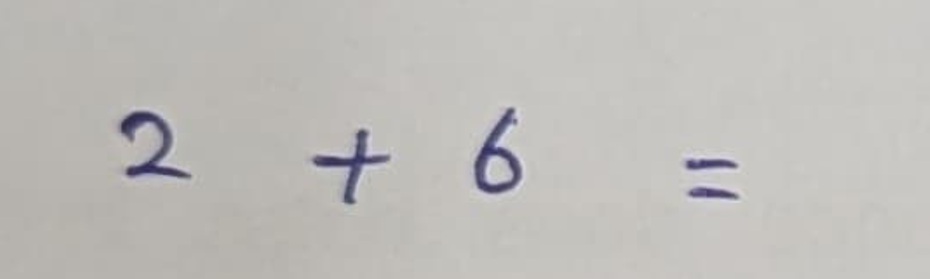 2 + 6 =